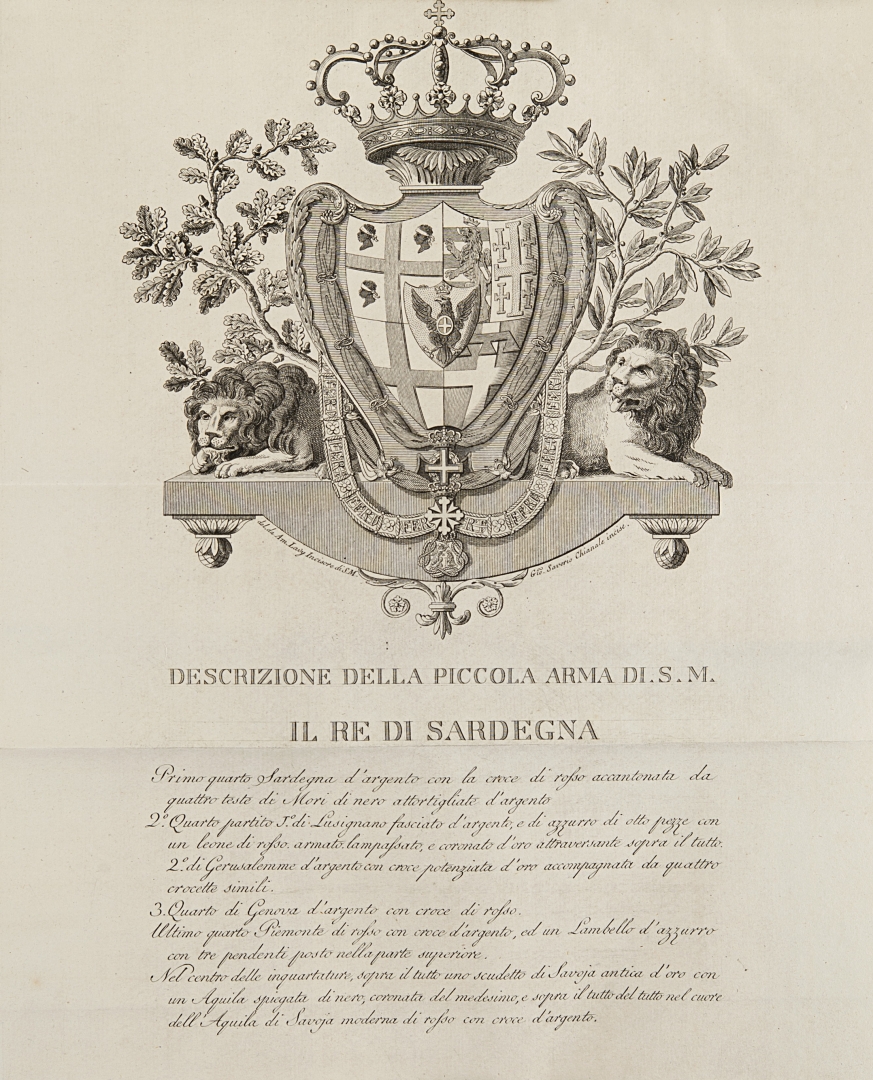 FERT FERT FERT FERT
del. ed. Am. Lavy Incisore di S.M.
Gio. Saverio Chianale incise.
DESCRIZIONE DELLA PICCOLA ARMA DI.S.M.
IL RE DI SARDEGNA
Primo quarto Sardegna d'argento con la croce di rosso accantonata da
quattro teste di Mori di nero attortigliato d'argento
2.º Quarto partito P.º di Lusignano fasciato d'argento, e di azzurro di otto pezze con
un leone di rosso. armato. lampassato, e coronato d'oro attraversante sopra il tutto.
2.º di Gerusalemme d'argento con croce potenziata d'oro accompagnata da quattro
crocette simili.
3. Quarto di Genova d'argento con croce di rosso.
Ultimo quarto Piemonte di rosso con croce d'argento, ed un Lambello d'azzurro
con tre pendenti posto nella parte superiore.
Nel centro delle inquartature, sopra il tutto uno scudetto di Savoja antica d'oro con
un Aquila spiegata di nero, coronata del medesimo, e sopra il tutto del tutto nel cuore
dell'Aquila di Savoja moderna di rosso con croce d'argento.